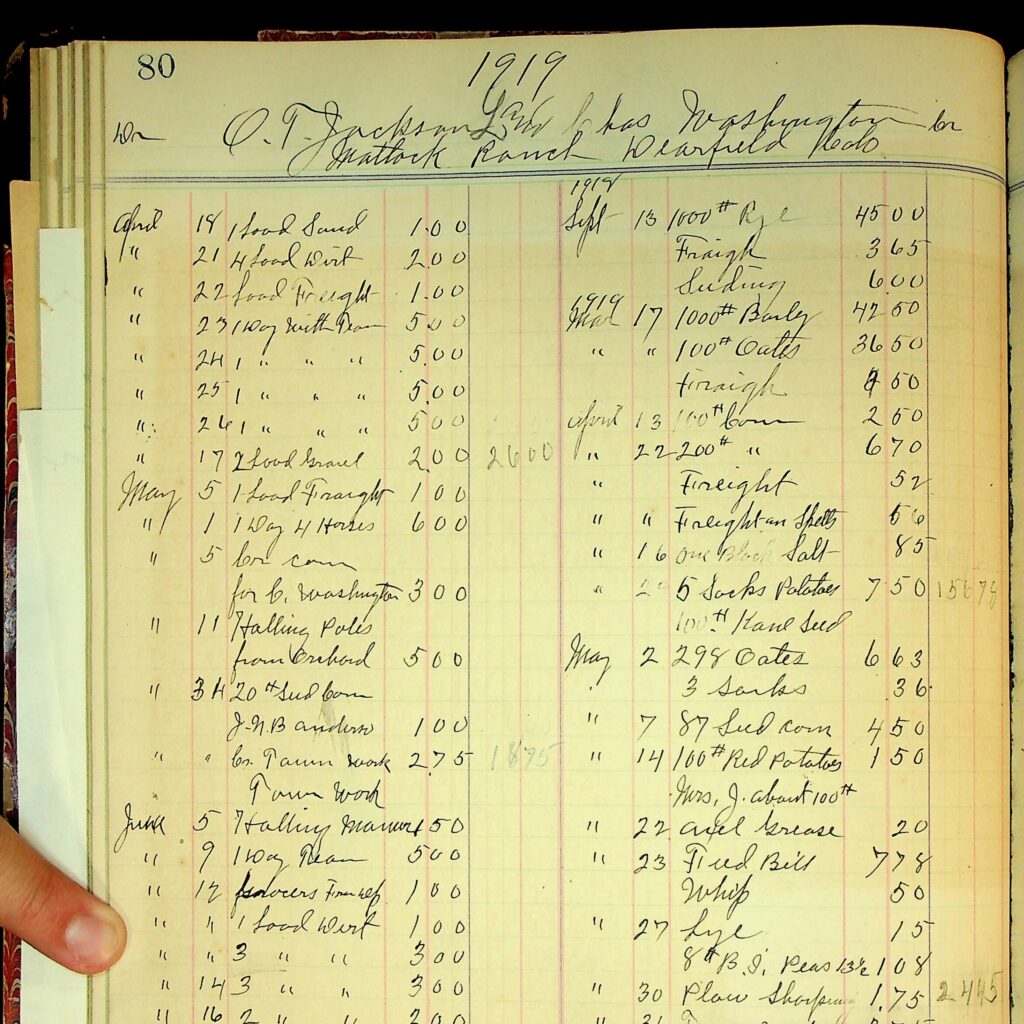 80
1919
Dr O. T. Jackson and Chas Washington Cr
Mattock Ranch Dearfield Colo
April 18 1 Load Sand 1.00
" 21 4 Load Dirt 2.00
" 22 Load Freight 1.00
" 23 1 Day With Team 5.00
" 24 1 " " " 5.00
" 25 1 " " " 5.00
" 26 1 " " " 5.00
" 17 2 Load Gravel 2.00 2600
May 5 1 Load Fraight 1 00
" 1 1 Day 4 Horses 6 00
" 5 Cr corn
for C. Washington 3 00
" 11 Halling Poles
from Orchard 5 00
" 20# Seed Corn
J.N.B anderso 1 00
" " Cr. Town Work 2.75 1875
Town Work
June 5 Halling Manure 1 50
" 9 1 Day Team 5 00
" 12 1 00
" " 1 Load Dirt 1 00
" " 3 " " 3 00
" 14 3 " " 3 00
" 16 2 " " 2 00
1918
Sept 13 1000# Rye 45 00
Fraigh 3 65
Seeding 6 00
1919
Mar 17 1000# Barly 42 50
" " 100# Oates 36 50
Fraigh 50
April 13 100# Corn 2 50
" 22 200# " 6 70
" Freight 52
" " Freight an 56
" 16 One Block Salt 85
" 5 Sacks Potatoes 7 50 15678
100# Kane Seed
May 2 298 Oates 6 63
" 3 Sacks 36
" 7 87 Seed corn 4 50
" 14 100# Red Potatoes 1 50
Mrs. J. about 100#
" 22 axel Grease 20
" 23 Feed Bill 7 78
Whip 50
" 27 Lye 15
8# B.I. Peas 13½ 1 08
" 30 Plow Sharping 1.75 2445
" 31